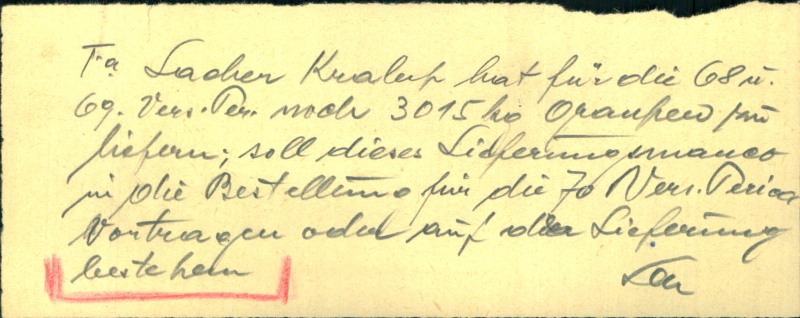 Fa Sacher Kralup hat für die 68 u.
69. Vers. Per. noch 3015 kg Graupen zu
liefern; soll dieses Lieferungsmanco
in die Bestellung für die 70 Vers. Period
Vortragen oder auf der Lieferung
bestehen